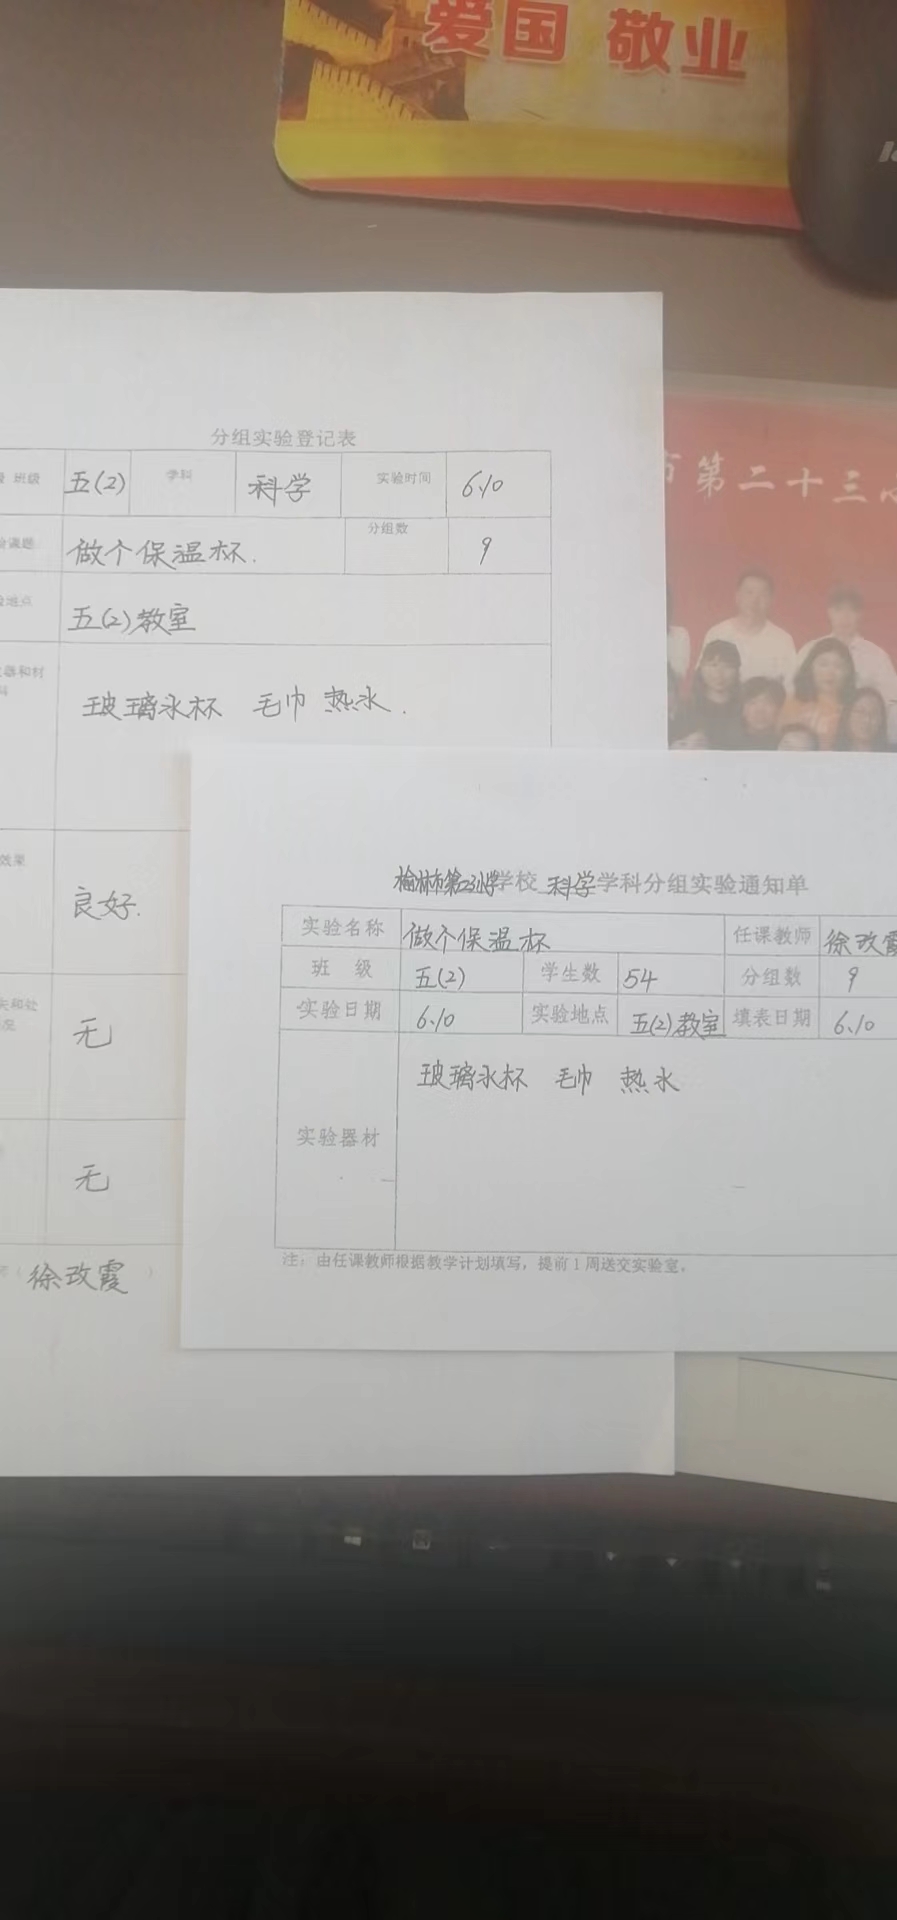 爱国 敬业
第二十三
分组实验登记表
班级 五(2) 学科 科学 实验时间 6.10
做个保温杯. 分组数 9
地点 五(2)教室
器和材 玻璃水杯 毛巾 热水.
效果 良好.
无
无
徐改霞
学校 科学 学科分组实验通知单
实验名称 做个保温杯 任课教师 徐改霞
班 级 五(2) 学生数 54 分组数 9
实验日期 6.10 实验地点 五(2)教室 填表日期 6.10
玻璃水杯 毛巾 热水
实验器材
注:由任课教师根据教学计划填写,提前1周送交实验室。